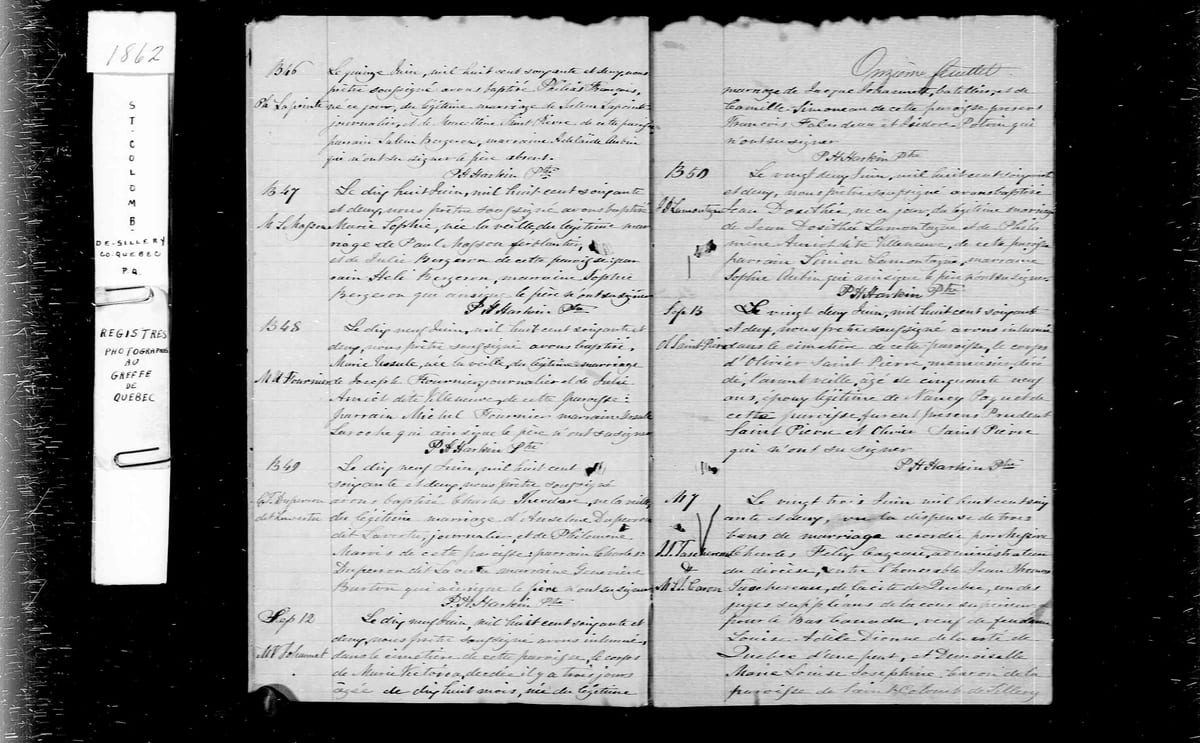 1862
ST-COLOMB
DE-SILLERY
CO-QUEBEC
P.Q.
REGISTRES
PHOTOGRAPHIÉS
AU
GREFFE
DE
QUEBEC
B46
Le quinze Juin, mil huit cent soixante et deux, nous
prêtre soussigné avons baptisé François,
Ph Lapointe
né ce jour, du légitime mariage de Salem Lapointe
journalier, et de Marie Saint Pierre de cette paroisse
parrain Salem Bergeron, marraine Adelaide Aubin
qui n'ont su signer le père absent.
P H Harkin Ptre
B47
Le dix huit Juin, mil huit cent soixante
et deux, nous prêtre soussigné avons baptisé
M S Masson
Marie Sophie, née la veille du légitime mar
riage de Paul Masson ferblantier,
et de Julie Bergeron de cette paroisse par
rain Bergeron, marraine Sophie
Bergeron qui ainsi que le père n'ont su signer
P H Harkin Ptre
B48
Le dix neuf Juin, mil huit cent soixante et
deux, nous prêtre soussigné avons baptisé,
Marie Ursule, née la veille du légitime mariage
M U Fournier
de Joseph Fournier, journalier et de Julie
Amiot dite Villeneuve, de cette paroisse:
parrain Michel Fournier marraine Ursule
Laroche qui ainsi que le père n'ont su signer
P H Harkin Ptre
B49
Le dix neuf Juin, mil huit cent
soixante et deux, nous prêtre soussigné
avons baptisé Charles né la veille
du légitime marriage d'Anselme Duperron
dit Laverdur, journalier, et de Philomène
Marois de cette paroisse: parrain Charles
Duperron dit marraine Genevieve
Burton qui ainsi que le père n'ont su signer
P. H. Harkin Ptre
Sep 12
Le dix neuf Juin, mil huit cent soixante et
deux, nous prêtre soussigné avons inhumé,
M V Johannet
dans le cimetière de cette paroisse, le corps
de Marie Victoria, décédée il y a trois jours
âgée de dix huit mois, née du légitime
Onzième feuillet
mariage de Jacque Johannet, batelier, et de
Camille Simoneau de cette paroisse presens
François Falardeau et Isidore Potvin qui
n'ont su signer
P H Harkin Ptre
B50
Le vingt deux Juin, mil huit cent soixante
et deux, nous prêtre soussigné avons baptisé
J D Lamontagne
Jean Dosithée, né ce jour, du légitime mariage
de Jean Dosithée Lamontagne et de Philo
mène Amiot dite Villeneuve, de cette paroisse
parrain Simion Lamontagne, marraine
Sophie Aubin qui ainsi que le père n'ont su signer
P H Harkin Ptre
Sep 13
Le vingt deux Juin, mil huit cent soixante
et deux, nous prêtre soussigné avons inhumé
Ol Saint Pierre
dans le cimetière de cette paroisse, le corps
d'Olivier Saint Pierre, menuisier, décé
dé, l'avant veille, agé de cinquante neuf
ans, époux légitime de Nancy Paquet de
cette paroisse furent présens Prudent
Saint Pierre et Olivier Saint Pierre
qui n'ont su signer
P H Harkin Ptre
M7
Le vingt trois Juin mil huit cent soix
ante et deux, vu la dispense de trois
bans de marriage accordée par Messire
J. T. Taschereau
Charles Felix Cazeau, administrateur
du diocèse, entre l'honorable Jean Thomas
&
M L J Caron
Taschereau, de la cité de Quebec, un des
juges suppléans de la cour supérieure
pour le Bas Canada, veuf de feu dame
Louise Adele Dionne de la cité de
Quebec d'une part, et Demoiselle
Marie Louise Josephine Caron de la
paroisse de Saint Colomb de Sillery